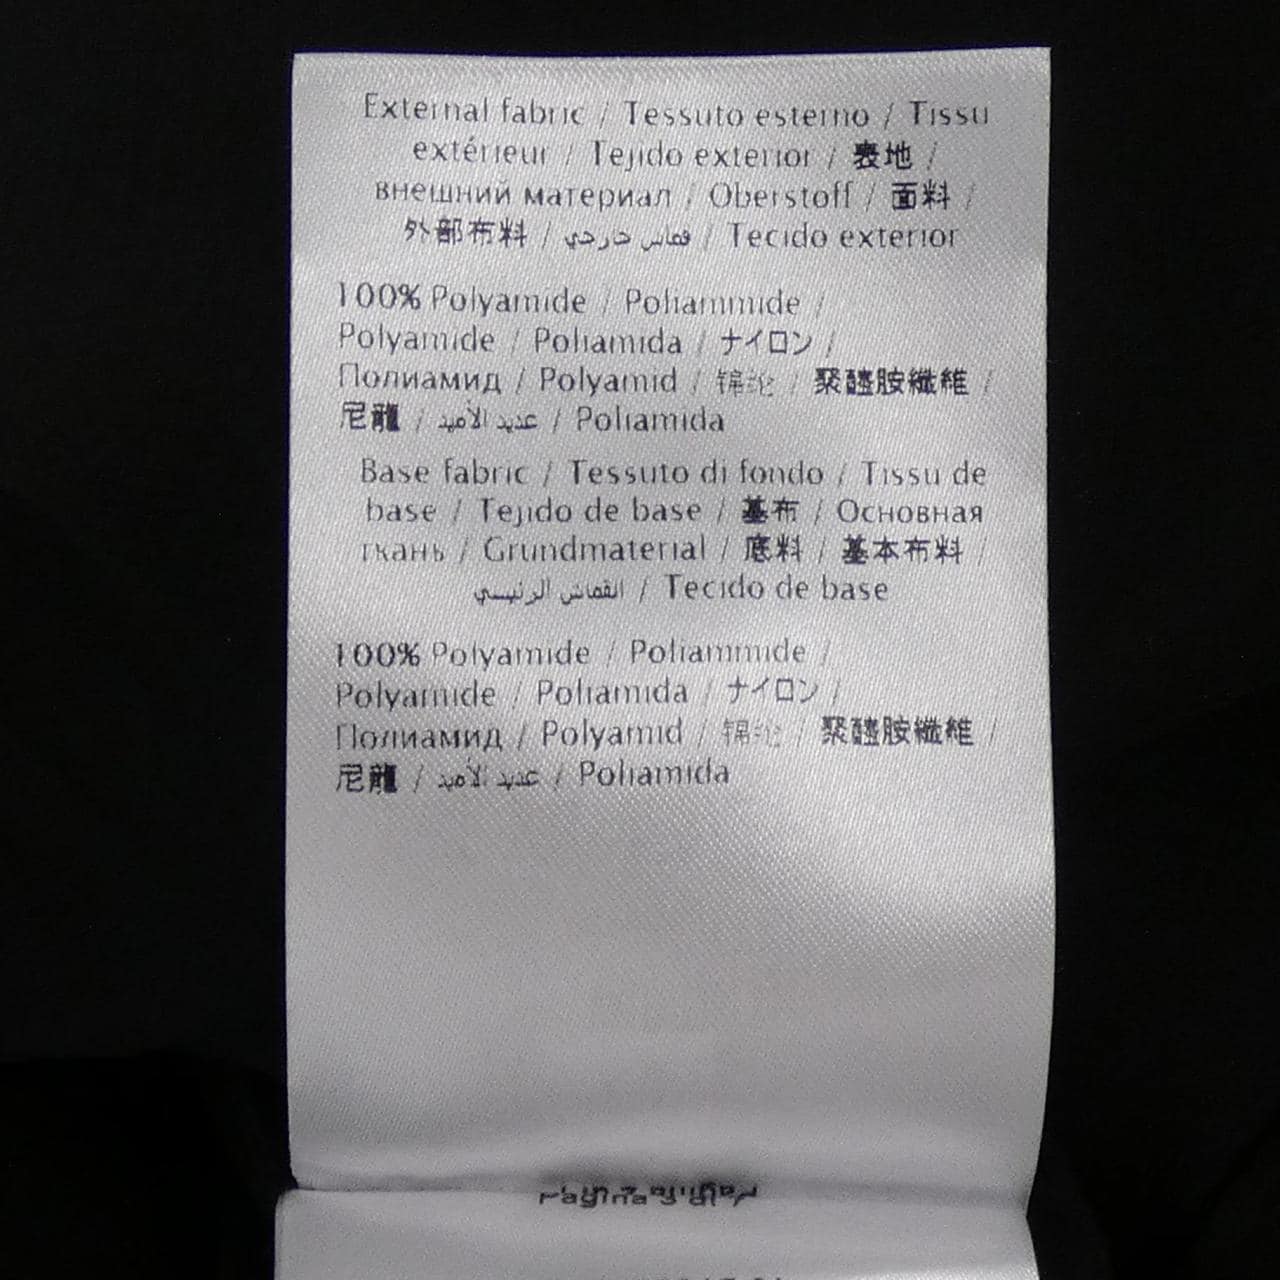 External fabric / Tessuto esterno / Tissu
extérieur / Tejido exterior / 表地 /
внешний материал / Oberstoff / 面料 /
外部布料 / قماس خارجي / Tecido exterior
100% Polyamide / Poliammide /
Polyamide / Poliamida / ナイロン /
Полиамид / Polyamid / 锦纶 / 聚醯胺纖維 /
尼龍 / عديد الأميد / Poliamida
Base fabric / Tessuto di fondo / Tissu de
base / Tejido de base / 基布 / Основная
ткань / Grundmaterial / 底料 / 基本布料 /
القماش الرئيسي / Tecido de base
100% Polyamide / Poliammide /
Polyamide / Poliamida / ナイロン /
Полиамид / Polyamid / 锦纶 / 聚醯胺纖維 /
尼龍 / عديد الأميد / Poliamida